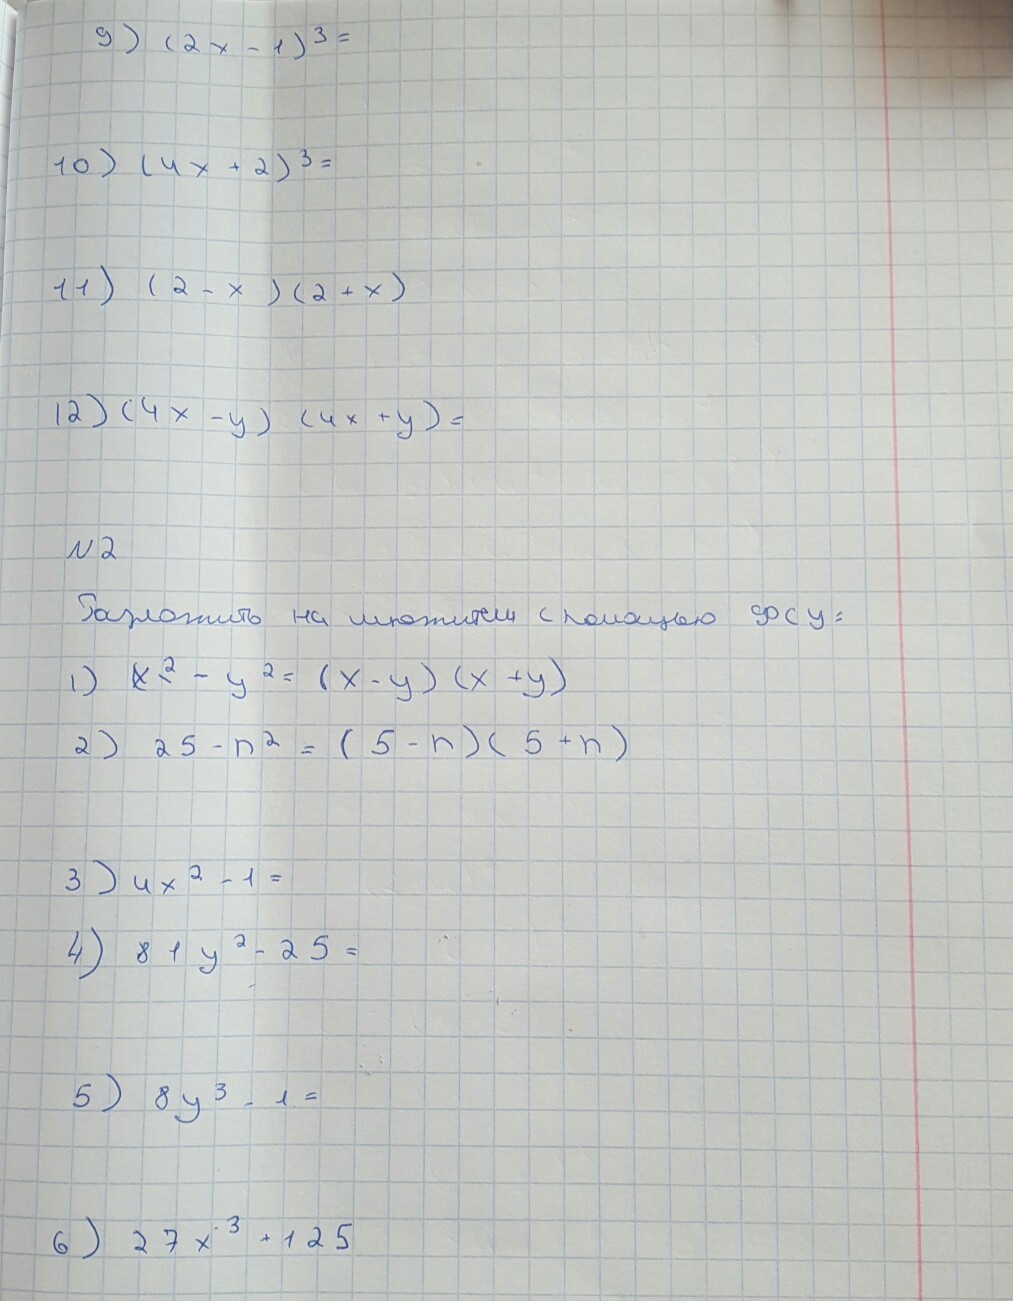 9) (2x - 1)³ =
10) (4x + 2)³ =
11) (2 - x)(2 + x)
12) (4x - y) (4x + y) =
N2
Разложить на множители с помощью ФСУ:
1) x² - y² = (x - y) (x + y)
2) 25 - n² = (5 - n)(5 + n)
3) 4x² - 1 =
4) 81y² - 25 =
5) 8y³ - 1 =
6) 27x³ + 125